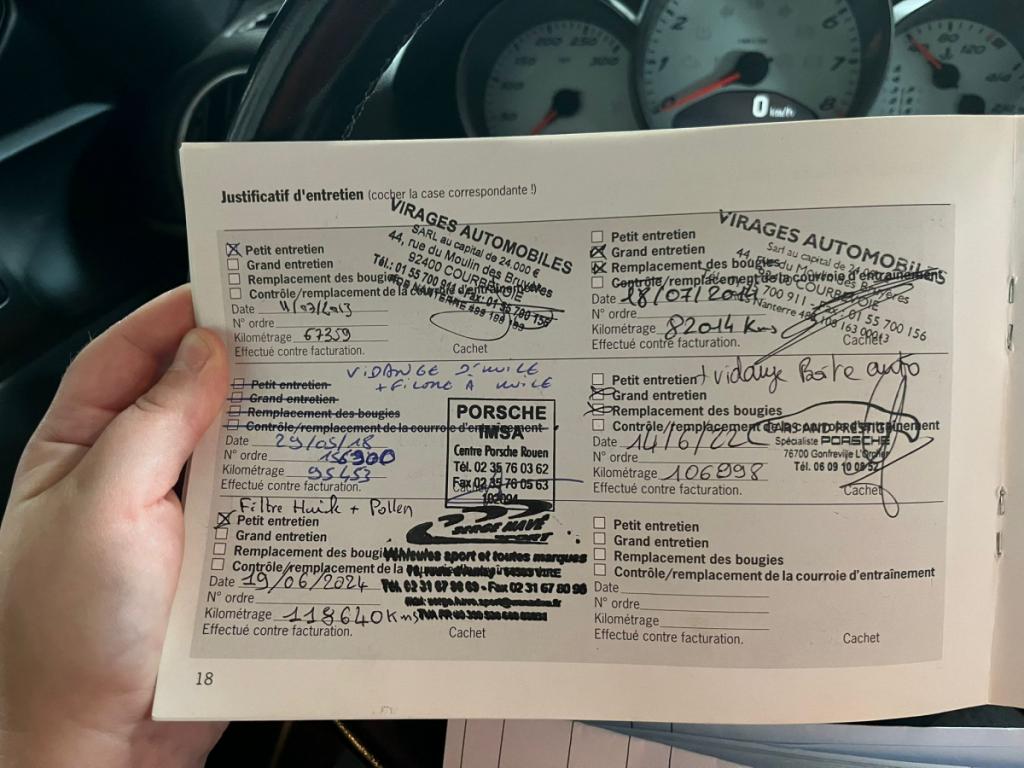 Justificatif d'entretien (cocher la case correspondante !)
Petit entretien
Grand entretien
Remplacement des bougies
Contrôle/remplacement de la courroie d'entraînement
Date 11/07/2013
N° ordre
Kilométrage 67359
Effectué contre facturation.
Cachet
VIRAGES AUTOMOBILES
SARL au capital de 24.000 €
44, rue du Moulin des Bruyères
92400 COURBEVOIE
Tél.: 01 55 700 911 - Fax: 01 55 700 156
Petit entretien
Grand entretien
Remplacement des bougies
Contrôle/remplacement de la courroie d'entraînement
Date 18/07/2014
N° ordre
Kilométrage 82014 Kms
Effectué contre facturation.
Cachet
VIRAGES AUTOMOBILES
Sarl au capital de
44, rue du Moulin des Bruyères
COURBEVOIE
700 911 - Fax: 01 55 700 156
VIDANGE D'HUILE
+ FILTRE A HUILE
Petit entretien
Grand entretien
Remplacement des bougies
Contrôle/remplacement de la courroie d'entraînement
Date 29/05/18
N° ordre
Kilométrage 95453
Effectué contre facturation.
Cachet
PORSCHE
IMSA
Centre Porsche Rouen
Tél. 02 35 76 03 62
Fax 02 35 76 05 63
+ vidange Boite auto
Petit entretien
Grand entretien
Remplacement des bougies
Contrôle/remplacement de la courroie d'entraînement
Date 14/6/22
N° ordre
Kilométrage 106998
Effectué contre facturation.
Cachet
CARS AND PRESTIGE
Spécialiste PORSCHE
76700 Gonfreville L'Orcher
Tél. 06 09 10 08 52
Filtre Huile + Pollen
Petit entretien
Grand entretien
Remplacement des bougies
Contrôle/remplacement de la
Date 19/06/2024
N° ordre
Kilométrage 118640 Kms
Effectué contre facturation.
Cachet
SPORT
Véhicules sport et toutes marques
Tél. 02 31 67 98 69 - Fax 02 31 67 80 98
Petit entretien
Grand entretien
Remplacement des bougies
Contrôle/remplacement de la courroie d'entraînement
Date
N° ordre
Kilométrage
Effectué contre facturation.
Cachet
18
0 km/h